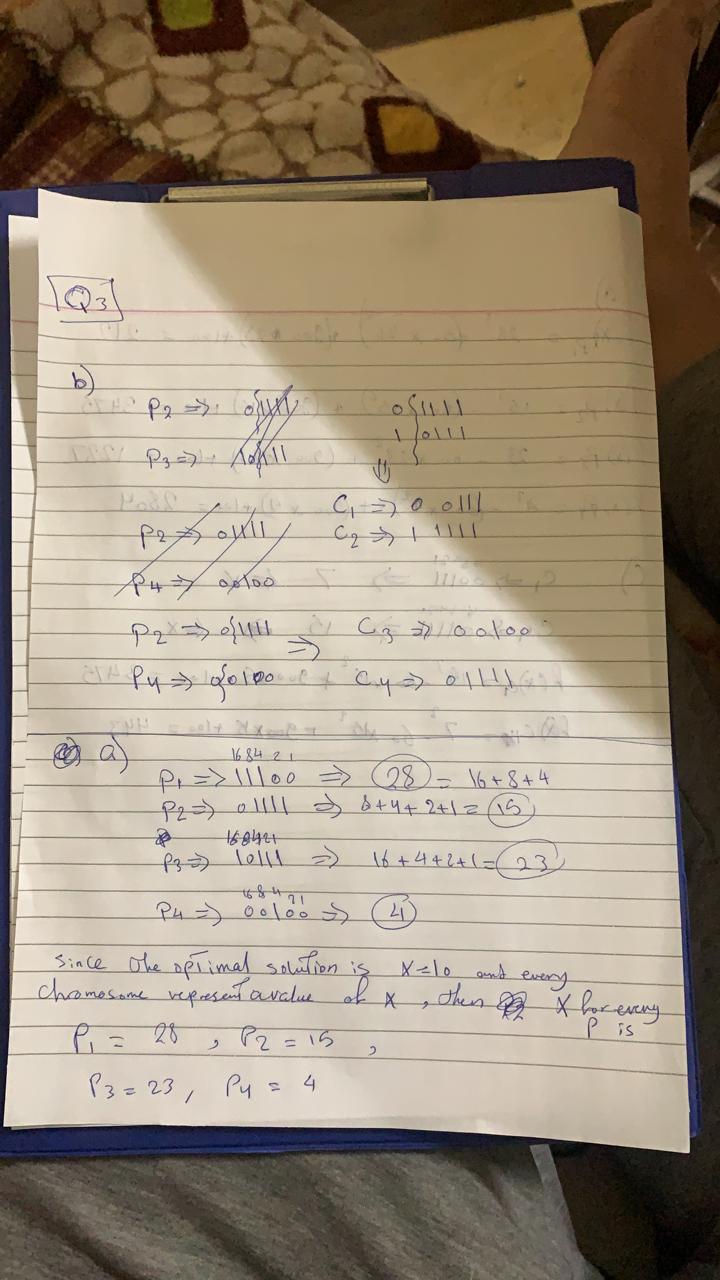 Q3
b)
P2 => 0{1111
P3 => 10111
0{1111
1{0111
⇓
C1 => 0 0111
C2 => 1 1111
P2 => 01111
P4 => 00100
P2 => 0{1111 => C3 => 00100
P4 => 0{0100 C4 => 01111
a)
16 8 4 2 1
P1 => 11100 => 28 = 16+8+4
P2 => 01111 => 8+4+2+1 = 15
16 8 4 2 1
P3 => 10111 => 16+4+2+1 = 23
16 8 4 2 1
P4 => 00100 => 4
Since the optimal solution is X=10 and every
chromosome represent a value of X, then X for every
P is
P1 = 28 , P2 = 15 ,
P3 = 23 , P4 = 4